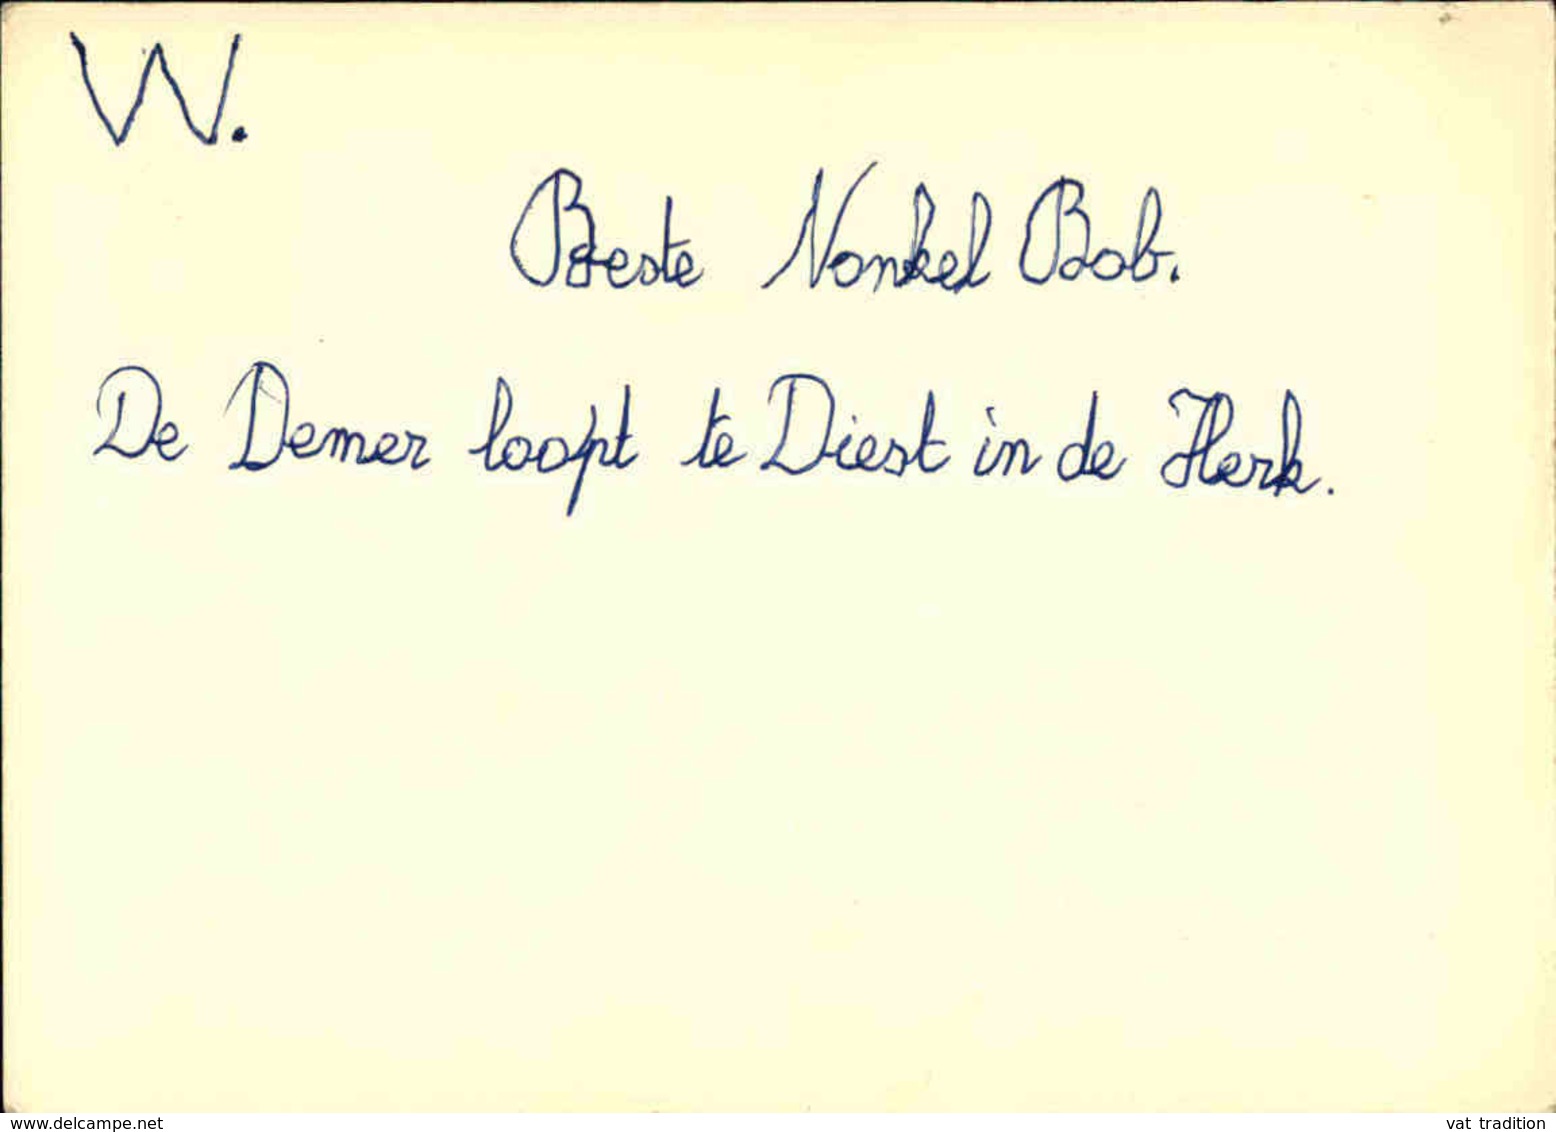 W.
Beste Nonkel Bob.
De Demer loopt te Diest in de Herk.
www.delcampe.net
vat tradition